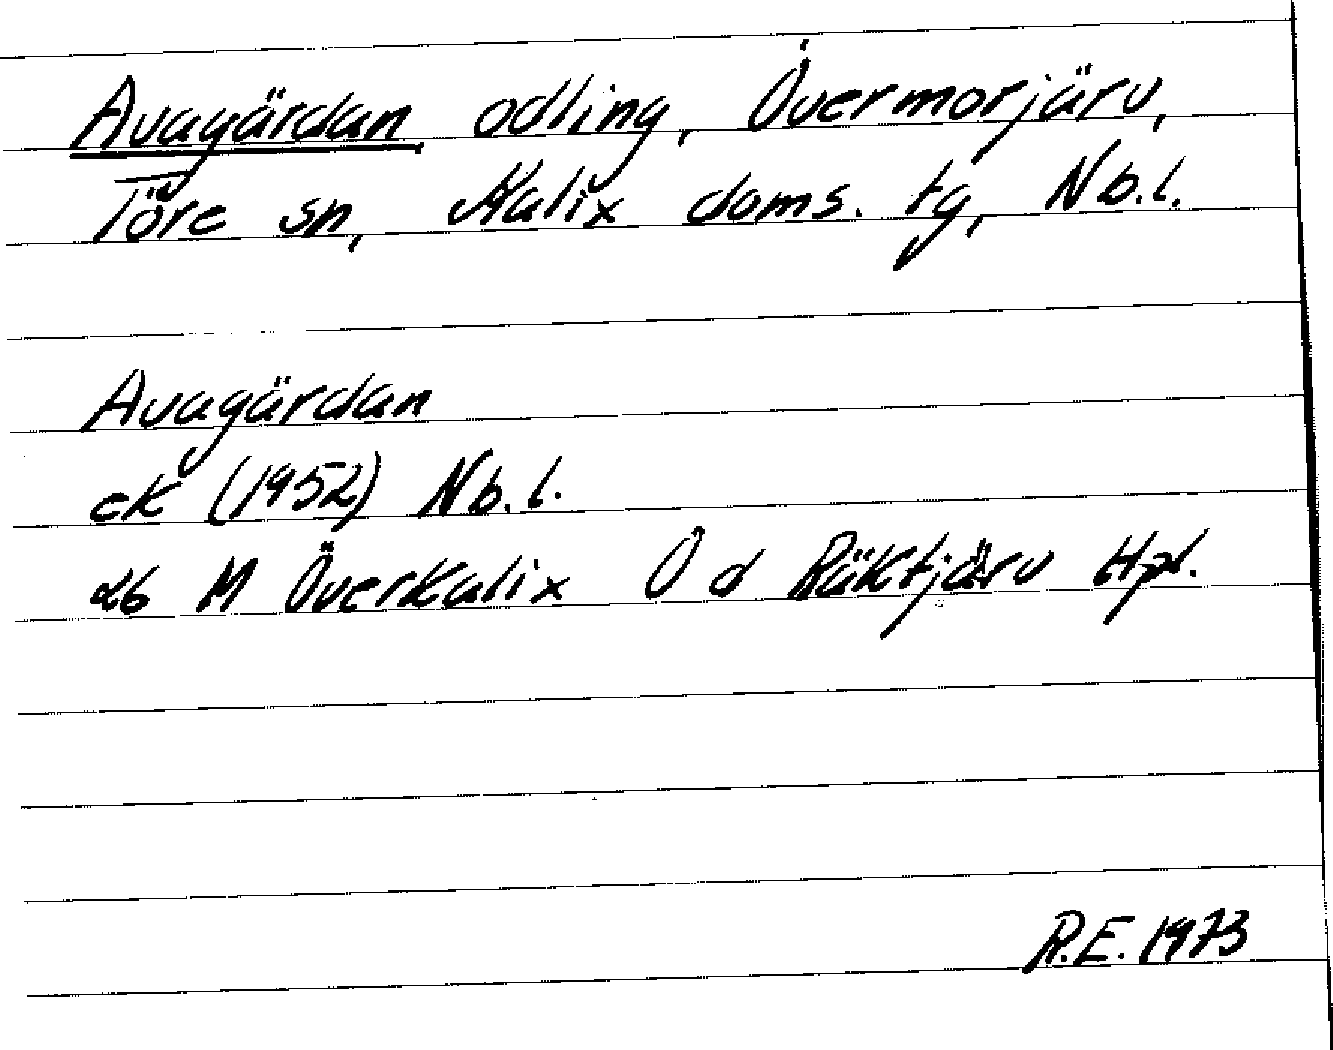 Avagärdan odling, Övermorjärv,
Töre sn, Kalix doms. tg, Nb.l.
Avagärdan
ek (1952) Nb.l.
26 M Överkalix Ö d Räktjärv Hpl.
R.E. 1973